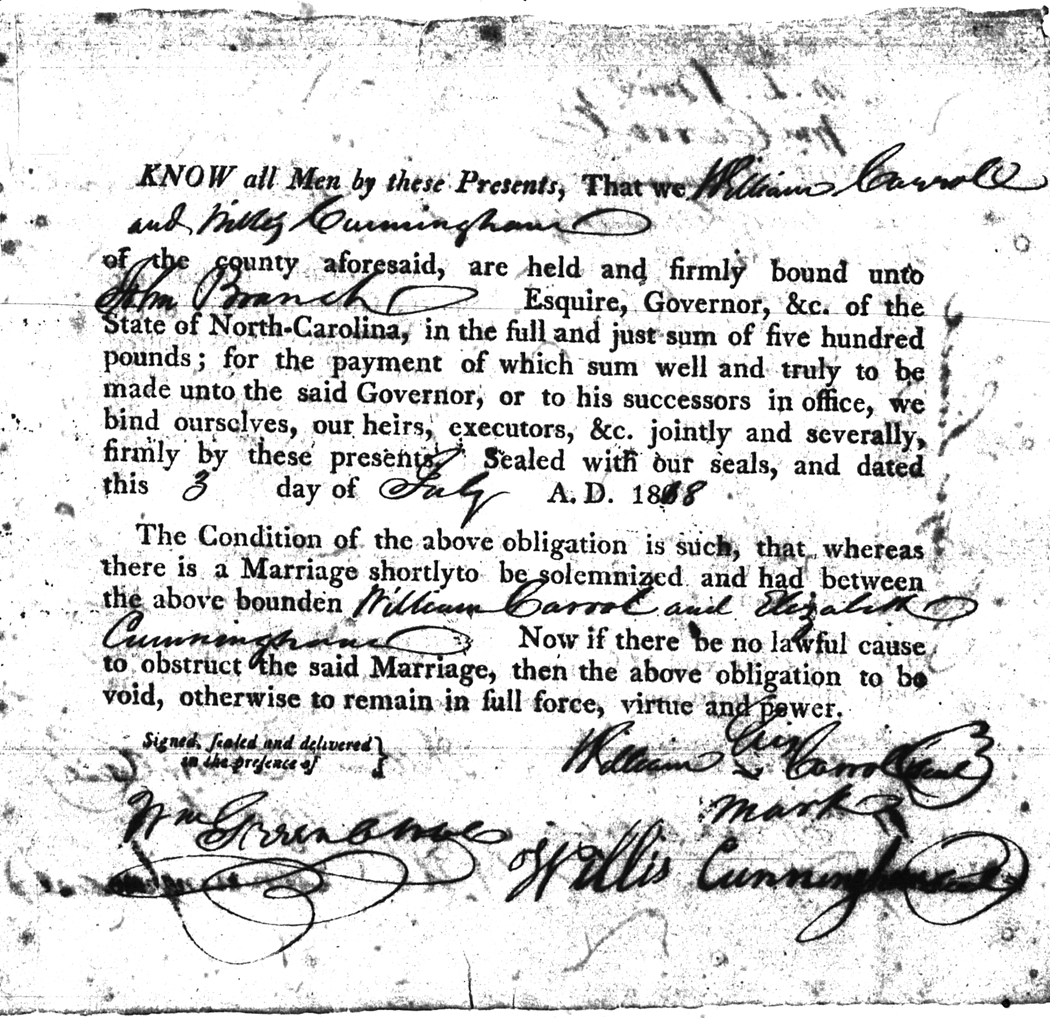 KNOW all Men by these Presents, That we William Carroll
and Willis Cunningham
of the county aforesaid, are held and firmly bound unto
John Branch Esquire, Governor, &c. of the
State of North-Carolina, in the full and just sum of five hundred
pounds; for the payment of which sum well and truly to be
made unto the said Governor, or to his successors in office, we
bind ourselves, our heirs, executors, &c. jointly and severally,
firmly by these presents. Sealed with our seals, and dated
this 3 day of July A. D. 1818
The Condition of the above obligation is such, that whereas
there is a Marriage shortlyto be solemnized and had between
the above bounden William Carrol and Elizabeth
Cunningham Now if there be no lawful cause
to obstruct the said Marriage, then the above obligation to be
void, otherwise to remain in full force, virtue and power.
Signed, sealed and delivered
in the presence of
his
William Carrol seal
mark
Wm
Willis Cunningham seal